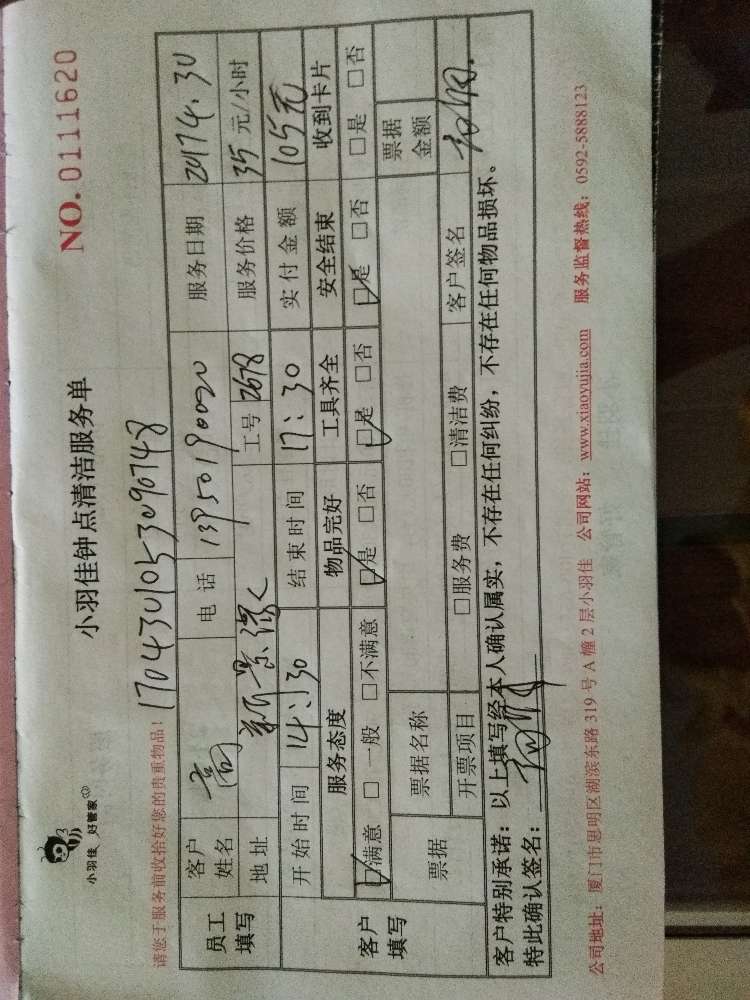 小羽佳 好管家
小羽佳钟点清洁服务单
NO.0111620
请您于服务前收拾好您的贵重物品！
1704301053090748
员工填写
客户姓名 高 电话 13950190020 服务日期 2017.4.30
地址 新景 工号 2678 服务价格 35 元/小时
客户填写
开始时间 14:30 结束时间 17:30 实付金额 105元
服务态度 物品完好 工具齐全 安全结束 收到卡片
☑满意 □一般 □不满意 ☑是 □否 ☑是 □否 ☑是 □否 □是 □否
票据 票据名称 票据金额
开票项目 □服务费 □清洁费 客户签名
客户特别承诺：以上填写经本人确认属实，不存在任何纠纷，不存在任何物品损坏。
特此确认签名：
公司地址：厦门市思明区湖滨东路 319 号 A 幢 2 层小羽佳 公司网站：www.xiaoyujia.com 服务监督热线：0592-5888123